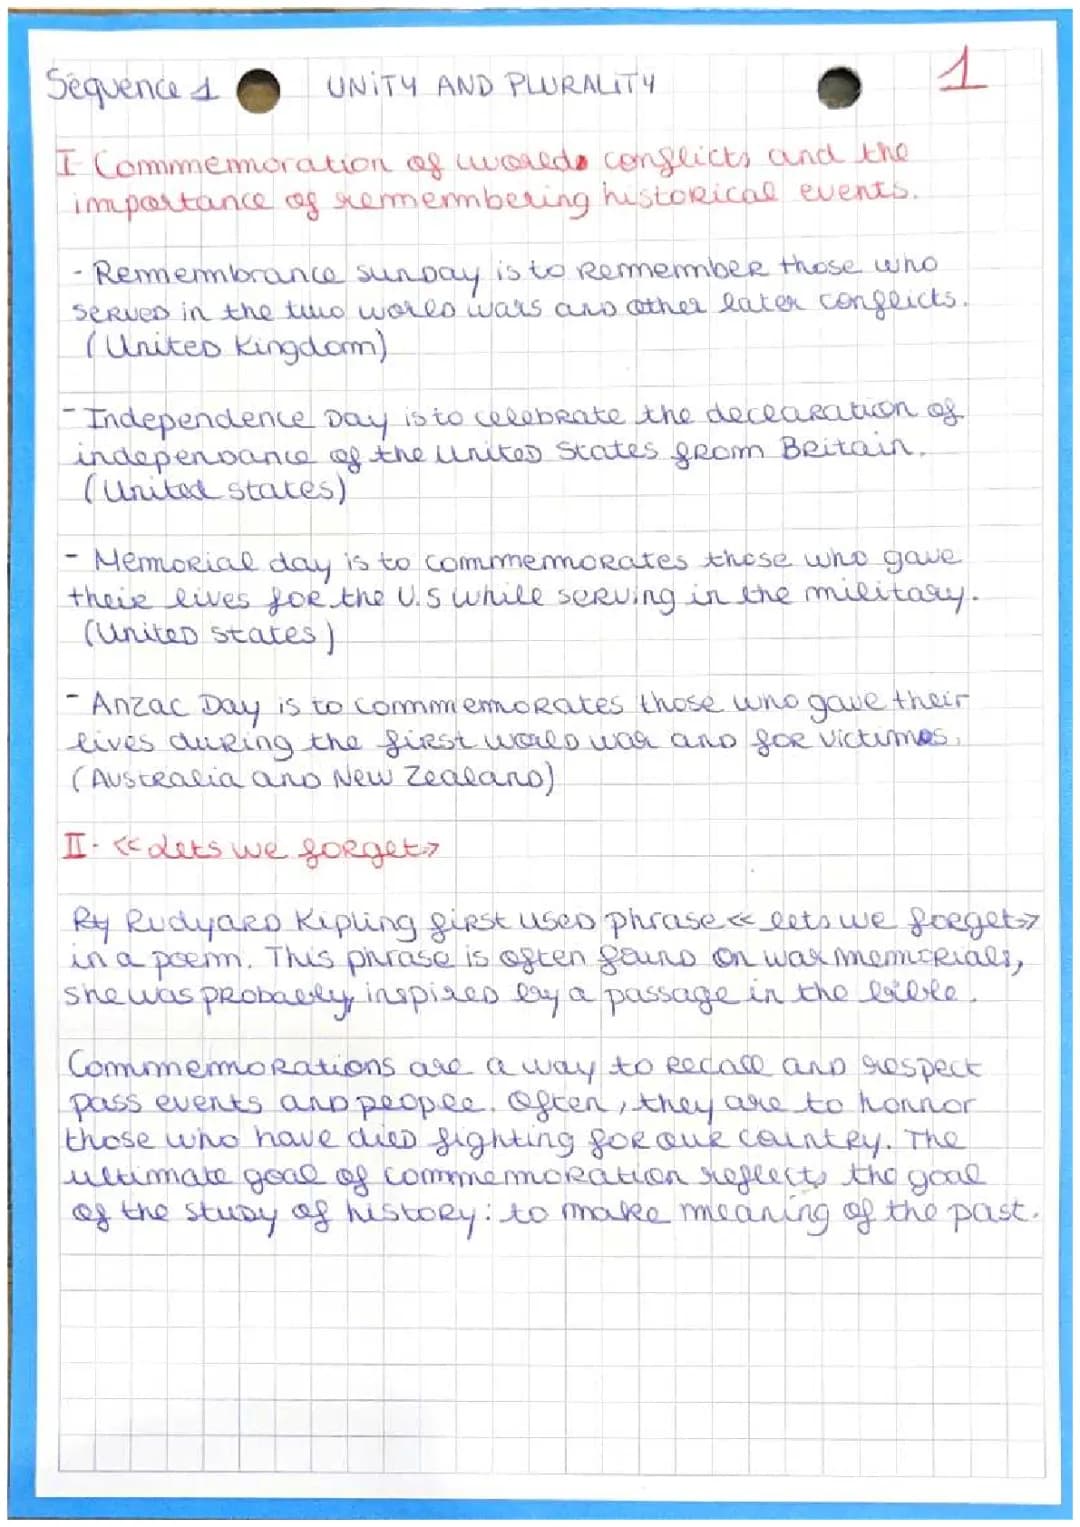 Séquence 1 UNITY AND PLURALITY 1
I- Commemoration of world conflicts and the
importance of remembering historical events.
- Remembrance sunday is to remember those who
served in the two world wars and other later conflicts.
(United Kingdom)
- Independence Day is to celebrate the declaration of
independance of the United States from Britain.
(United states)
- Memorial day is to commemorates those who gave
their lives for the U.S while serving in the military.
(United states)
- Anzac Day is to commemorates those who gave their
lives during the first world war and for victimes.
(Australia and New Zealand)
II- «Lets we forget»
By Rudyard Kipling first used phrase « lets we forget»
in a poem. This phrase is often found on war memorials,
she was probably inspired by a passage in the bible.
Commemorations are a way to recall and respect
pass events and people. Often, they are to honnor
those who have died fighting for our country. The
ultimate goal of commemoration reflects the goal
of the study of history: to make meaning of the past.